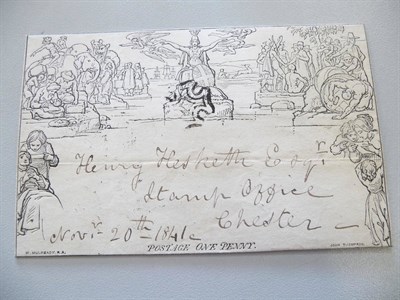 Henry Hesketh Esqr.
Stamp Office
Chester
Novr. 20th 1841
POSTAGE ONE PENNY.
W. MULREADY. R.A.
JOHN THOMPSON